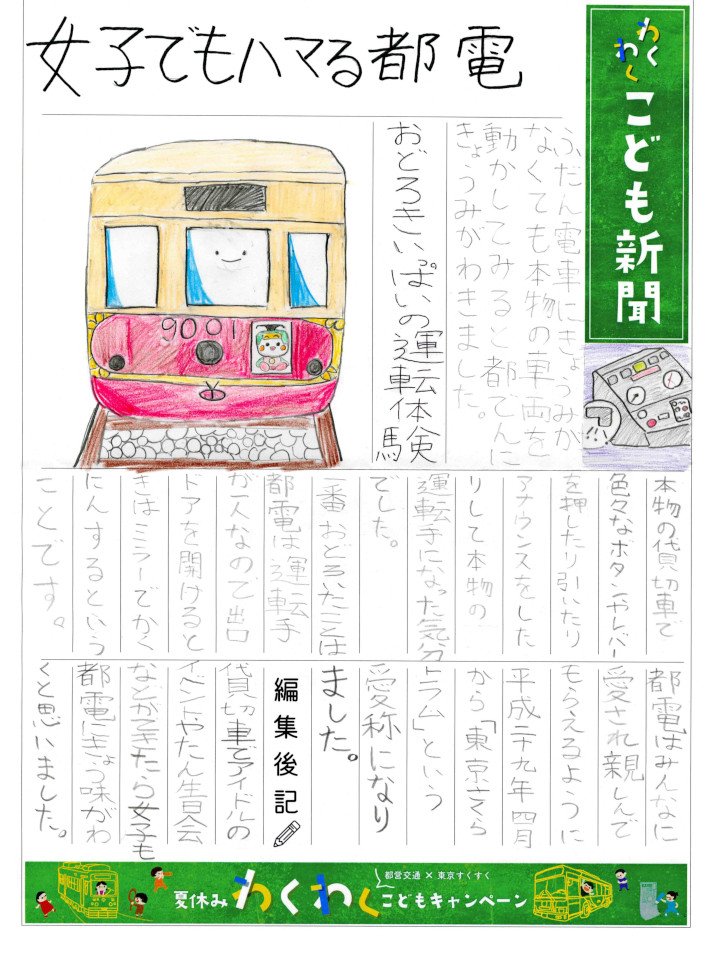 わくわく
こども新聞
女子でもハマる都電
ふだん電車にきょうみが
なくても本物の車両を
動かしてみると都でんに
きょうみがわきました。
おどろきいっぱいの運転体験
9001
本物の貸切車で
色々なボタンやレバー
を押したり引いたり
アナウンスをした
りして本物の
運転手になった気分
でした。
一番おどろいたことは
都電は運転手
が一人なので出口
ドアを開けると
きはミラーでかく
にんするという
ことです。
都電はみんなに
愛され親しんで
もらえるように
平成二十九年四月
から「東京さくら
トラム」という
愛称になり
ました。
編集後記
貸切車でアイドルの
イベントやたん生日会
などができたら女子も
都電にきょう味がわ
くと思いました。
都営交通×東京すくすく
夏休みわくわくこどもキャンペーン